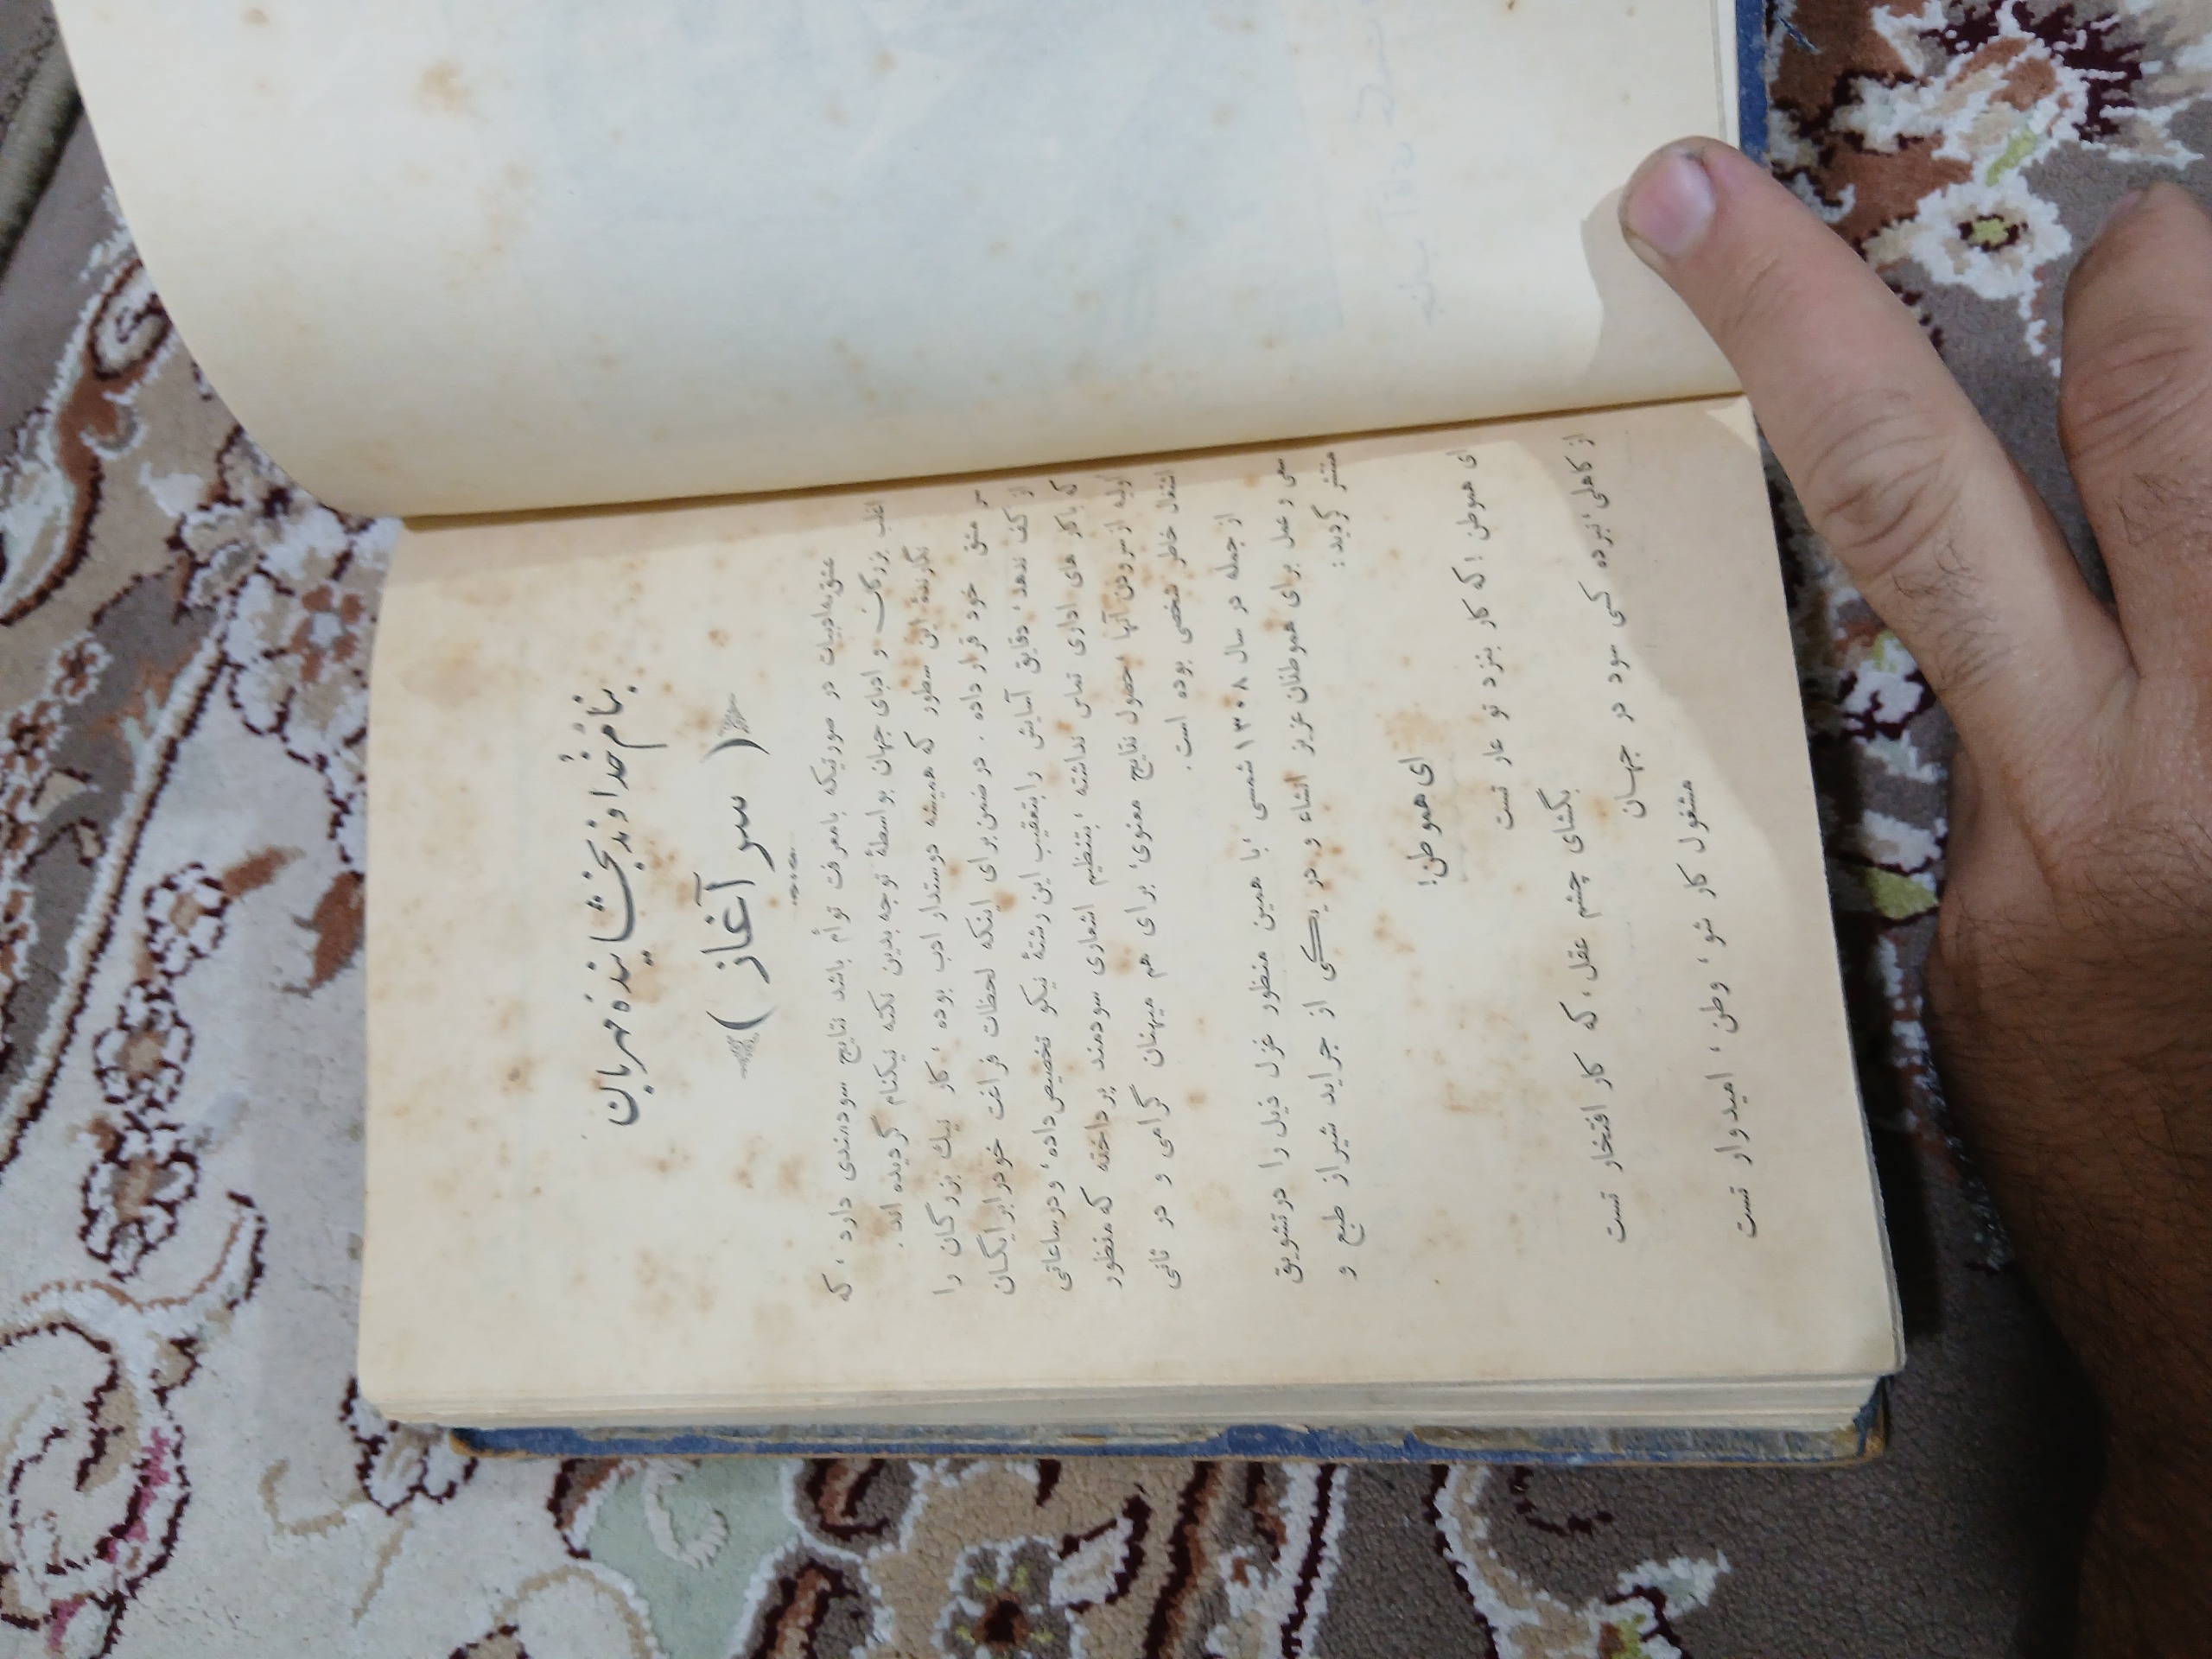 بنام خداوند بخشاینده مهربان
( سر آغاز )
عشق به ادبیات در صورتیکه بامعرفت توأم باشد نتایج سودمندی دارد ، که
اغلب بزرگان و ادبای جهان بواسطهٔ توجه بدین نکته نیکنام گردیده اند .
نگارندهٔ این سطور که همیشه دوستدار ادب بوده ، کار نیك بزرگان را
سر مشق خود قرار داده . در ضمن برای اینکه لحظات فراغت خودرا برایگان
از کف ندهد ، دقایق آسایش را بتعقیب این رشتهٔ نیکو تخصیص داده ، و در ساعاتی
که باکار های اداری تماس نداشته ، بتنظیم اشعاری سودمند پرداخته که منظور
اولیه از سرودن آنها حصول نتایج معنوی ، برای هم میهنان گرامی و در ثانی
اشتغال خاطر شخصی بوده است .
از جمله در سال ۱۳۰۸ شمسی ، با همین منظور غزل ذیل را در تشویق
سعی و عمل برای هموطنان عزیز انشاء و در یکی از جراید شیراز طبع و
منتشر گردید :
ای هموطن!
ای هموطن ! که کار بنزد تو عار تست
بگشای چشم عقل ، که کار افتخار تست
از کاهلی نبرده کسی سود در جهان
مشغول کار شو ، وطن ، امیدوار تست